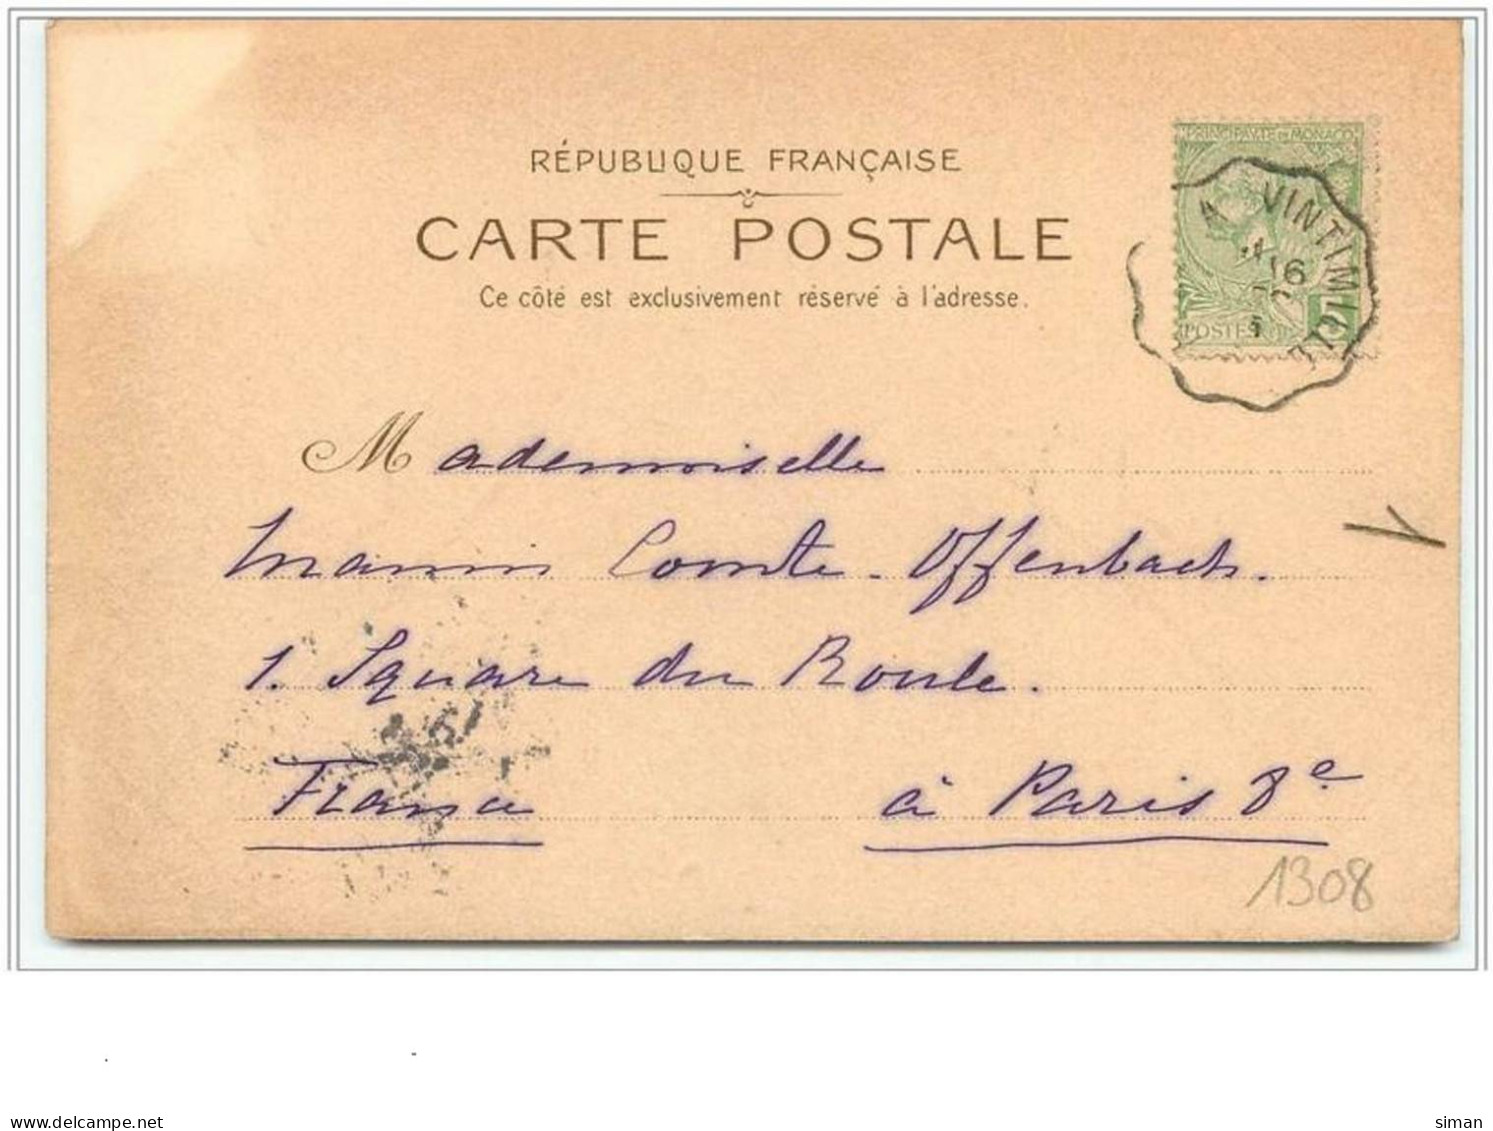 PRINCIPAUTÉ DE MONACO
RÉPUBLIQUE FRANÇAISE
VINTIMILLE
A
CARTE POSTALE
16
Ce côté est exclusivement réservé à l'adresse.
POSTES
5
Mademoiselle
Comte-Offenbach.
1. Square du Roule.
France à Paris 8e
1308
delcampe.net
siman